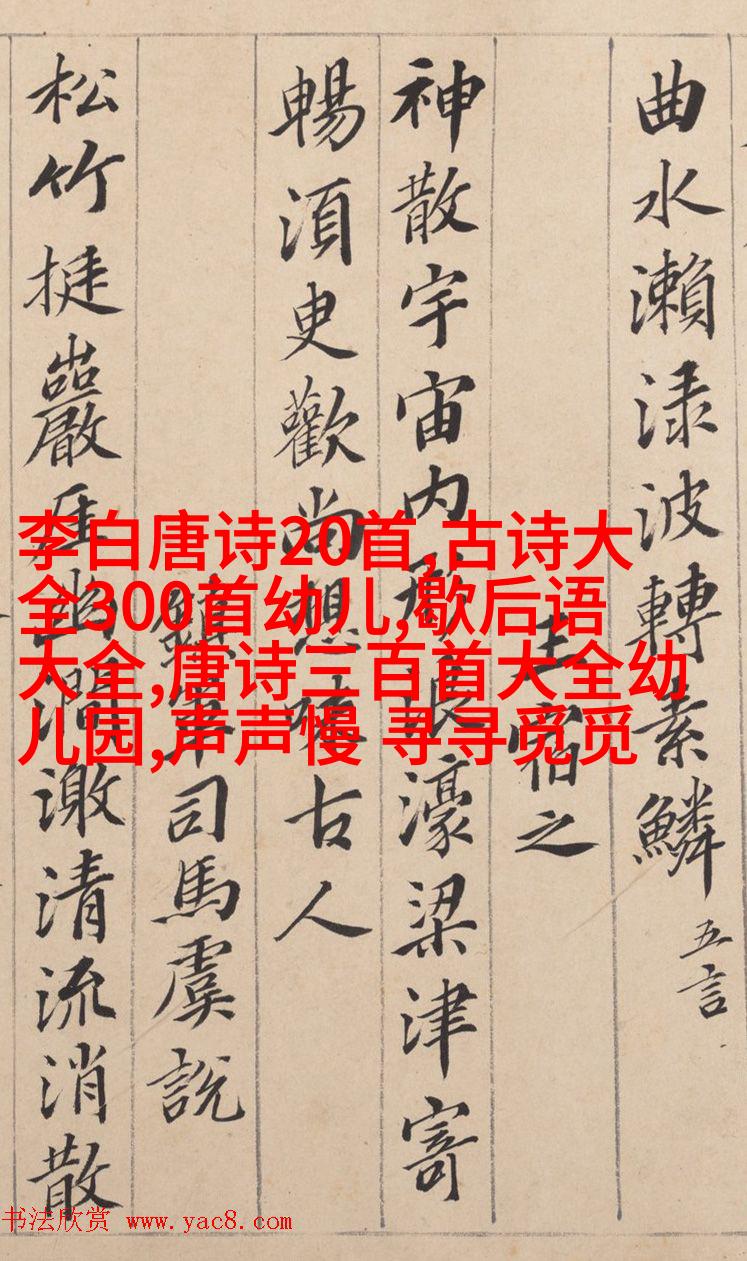 曲水瀨渌波轉素鱗 五言
王宿之
神散宇宙内形浪濠梁津寄
暢湏臾歡尚想味古人
鎮軍司馬虞說
松竹挺巖崖幽澗激清流消散
李白唐诗20首,古诗大
全300首幼儿,歇后语
大全,唐诗三百首大全幼
儿园,声声慢 寻寻觅觅
书法欣赏 www.yac8.com